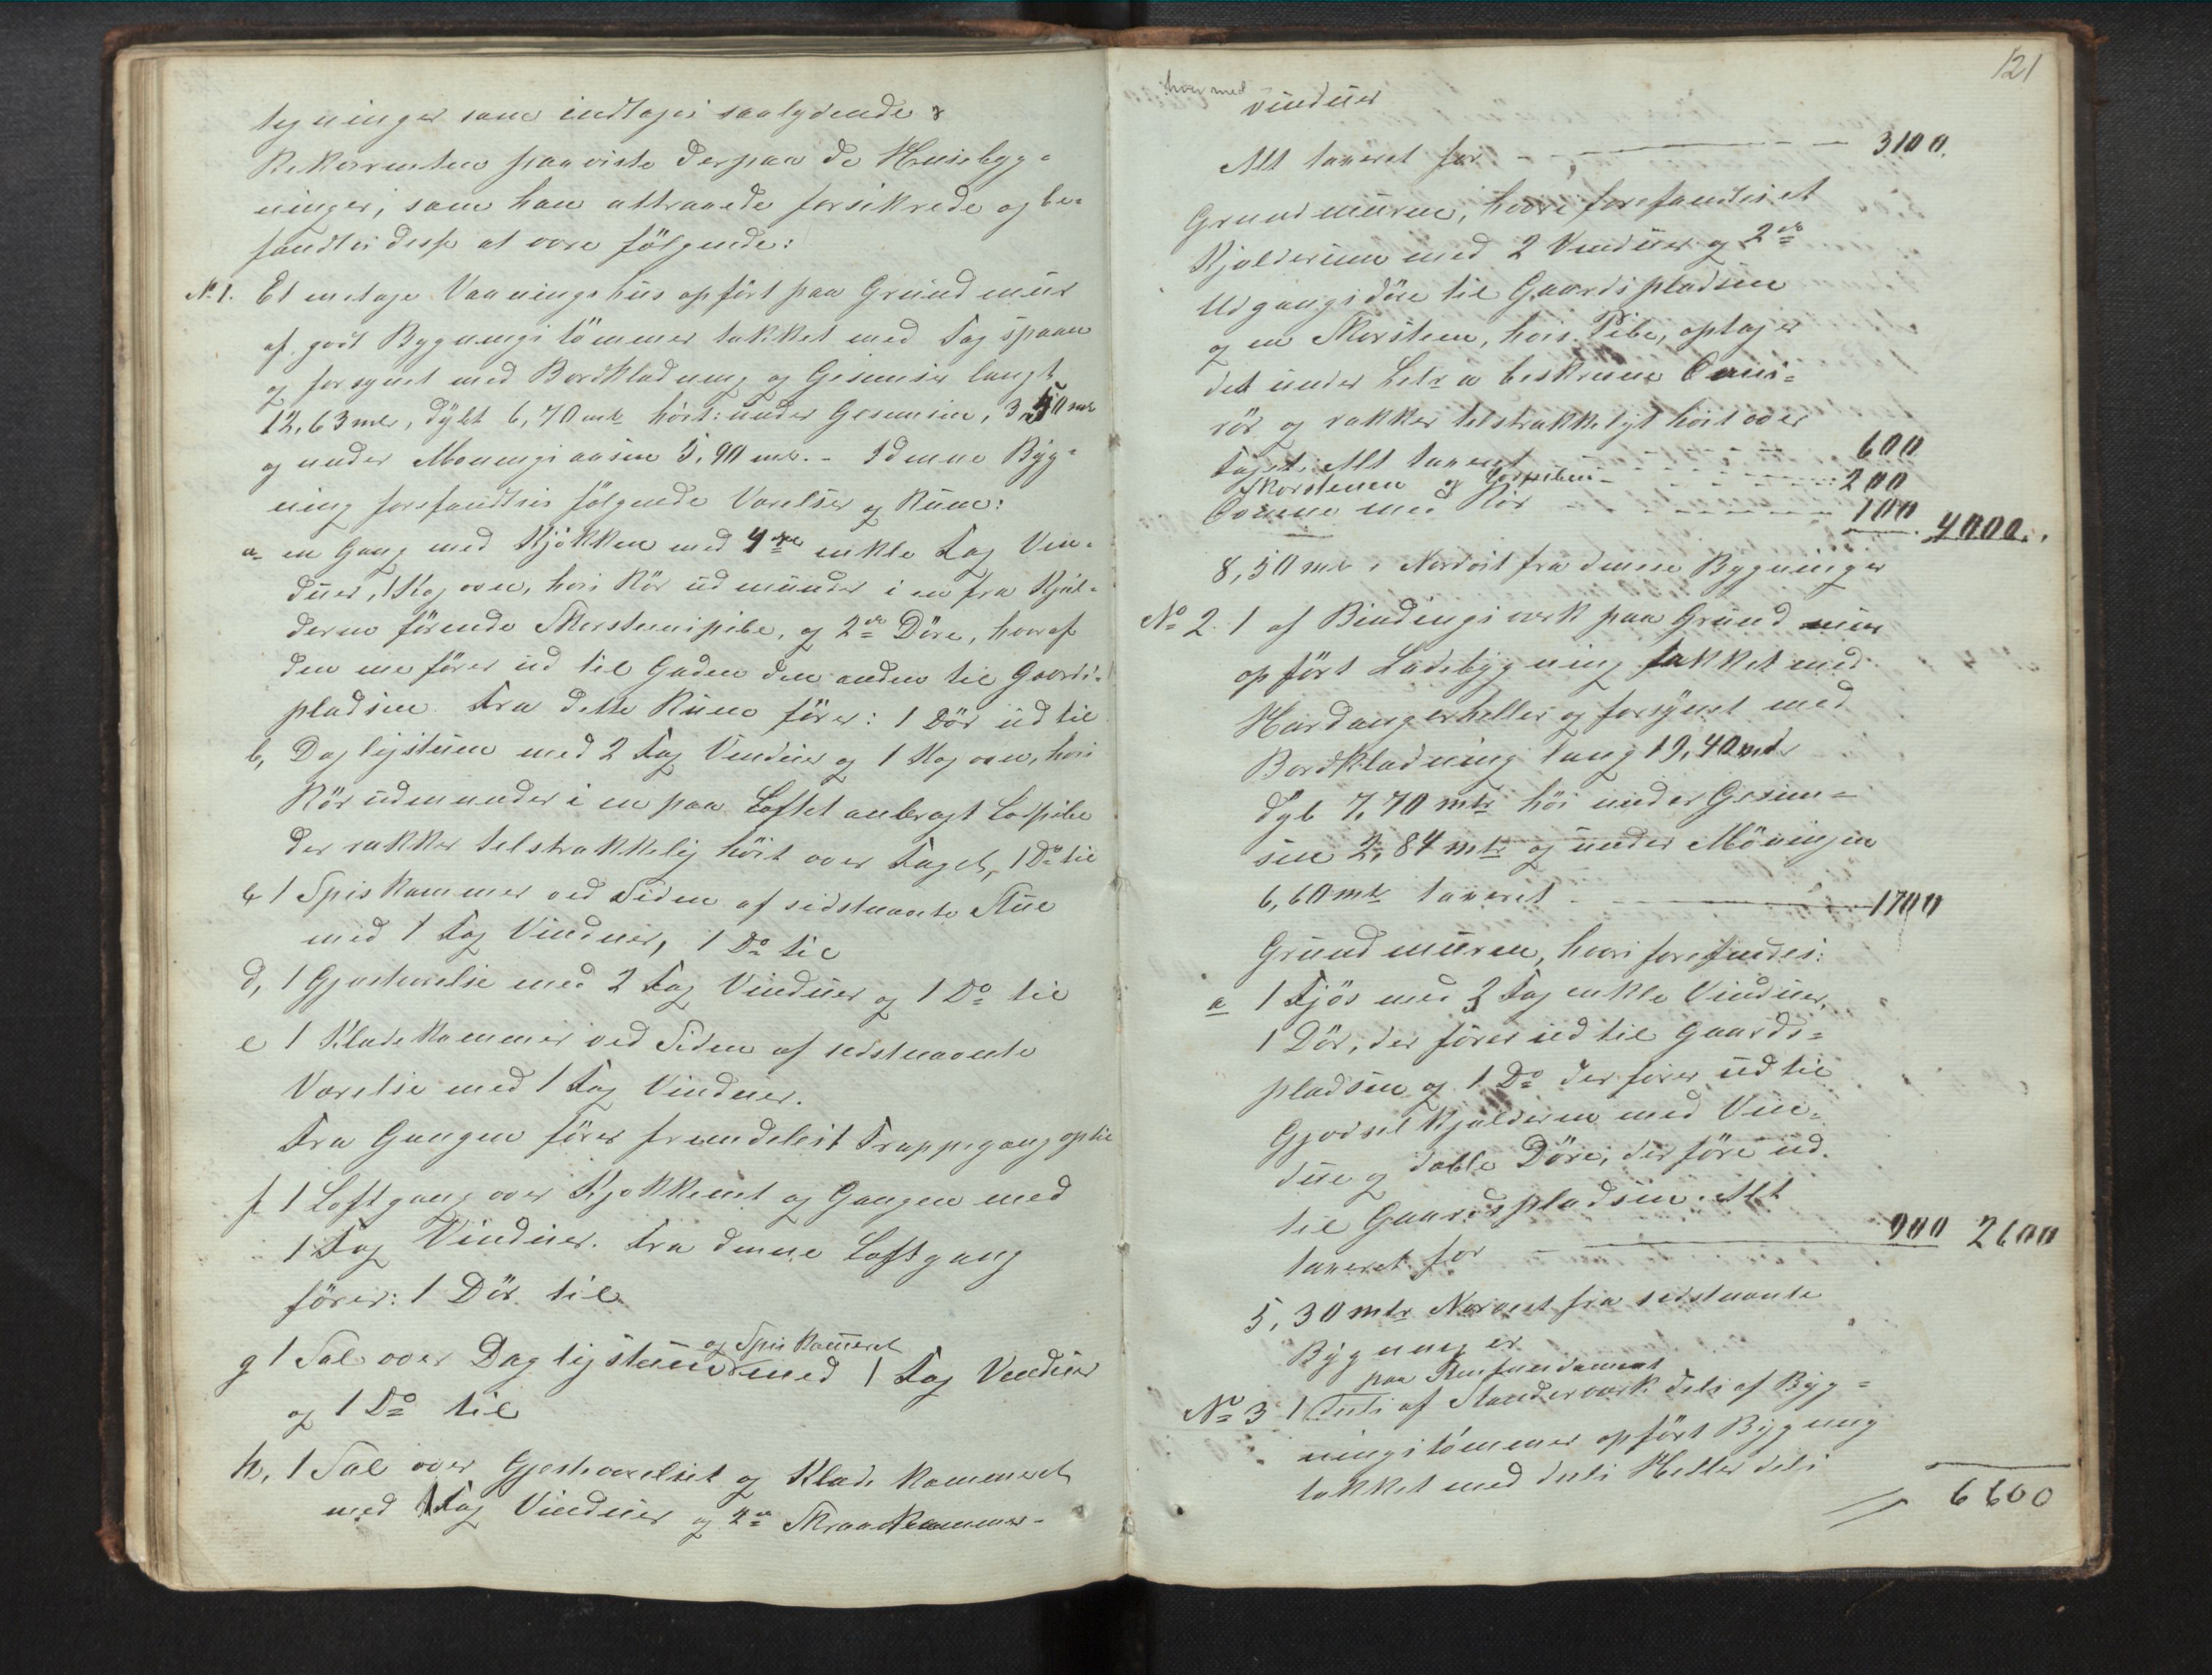 tegninger som indtages saalydende :
Rekvirenten paaviste derpaa de Huusebyg-
ninger, som han attraaede forsikrede og be-
fandtes disse at være følgende:
No 1. Et enetages Vaaningshus opført paa Grundmur
af godt Bygningstømmer tækket med Tagspaan
og forsynet med Bordklædning og Gesimser langt
12,63 mtr, dybt 6,70 mtr høit: under Gesimsen, 3,50 mtr
og under Mønningsaasen 5,90 mtr. - I denne Byg-
ning forefandtes følgende Værelser og Rum:
a en Gang med Kjøkken med 4re enkle Fag Vin-
duer, 1 Kogovn, hvis Rør udmunder i en fra Kjæl-
deren førende Skorstenspibe, og 2de Døre, hvoraf
den ene fører ud til Gaden den anden til Gaards-
pladsen. Fra dette Rum fører: 1 Dør ud til
b, Dagligstuen med 2 Fag Vinduer og 1 Kogovn, hvis
Rør udmunder i en paa Loftet anbragt Lodpibe
der rækker tilstrækkelig høit over Taget, 1 Do til
c 1 Spiskammer ved Siden af sidstnævnte Stue
med 1 Fag Vinduer, 1 Do til
d, 1 Gjesteværelse med 2 Fag Vinduer og 1 Do til
e 1 Klædekammer ved Siden af sidstnævnte
Værelse med 1 Fag Vinduer.
Fra Gangen fører fremdeles 1 Trappegang op til
f 1 Loftgang over Kjøkkenet og Gangen med
1 Fag Vinduer. Fra denne Loftgang
fører: 1 Dør til
og Spiskammeret
g 1 Sal over Dagligstuen med 1 Fag Vinduer
og 1 Do til
h, 1 Sal over Gjesteværelset og Klædekammeret
med 1 Fag Vinduer og 2de Skraakammer-
121
hver med
vinduer
Alt taxeret for 3100.
Grundmuren, hvori forefandtes et
Kjælderrum med 2 Vinduer og 2de
Udgangsdøre til Gaardspladsen
og en Skorsten, hvis Pibe, optager
det under Letr a beskrevne Ovns-
rør og rækker tilstrækkeligt høit over
Taget. Alt taxeret 600
Skorstenen og Lodpiben 200
Ovnene med Rør 100 4000.
8,50 mtr i Nordost fra denne Bygning er
No 2. 1 af Bindingsverk paa Grundmur
opført Ladebygning tækket med
Hardangerheller og forsynet med
Bordklædning lang 19,40 mtr
dyb 7,70 mtr høi under Gesim-
sen 2,84 mtr og under Møningen
6,60 mtr taxeret 1700
Grundmuren, hvori forefindes:
a 1 Fjøs med 3 Fag enkle Vinduer,
1 Dør, der fører ud til Gaards-
pladsen og 1 Do der fører ud til
Gjødselkjælderen med Vin-
due og doble Døre, der føre ud
til Gaardspladsen. Alt
taxeret for 900 2600
5,30 mtr Nordvest fra sidstnævnte
Bygning er
paa Stenfundament
No 3 1 dels af Standerværk dels af Byg-
ningstømmer opført Bygning
tækket med dels Heller dels
6600